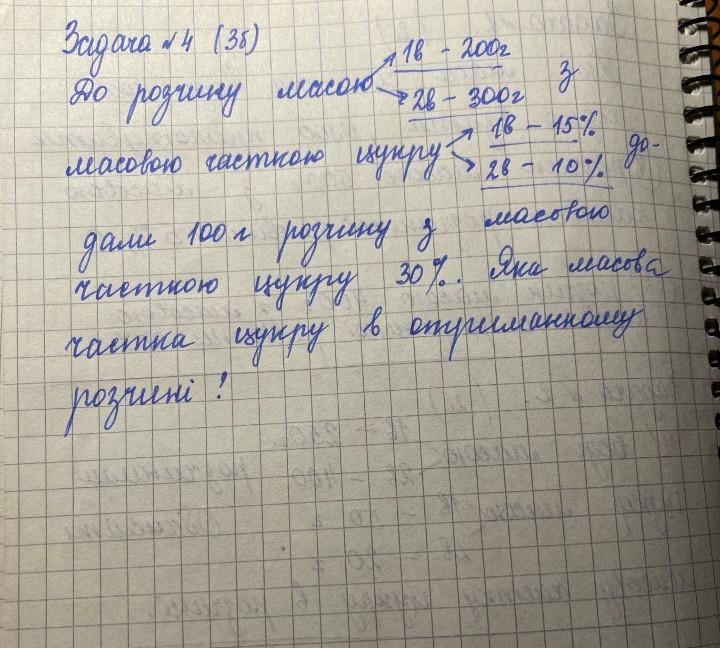 Задача №4 (3б)
До розчину масою 1в - 200г з
2в - 300г
масовою часткою цукру 1в - 15% до-
2в - 10%
дали 100г розчину з масовою
часткою цукру 30%. Яка масова
частка цукру в отриманному
розчині!